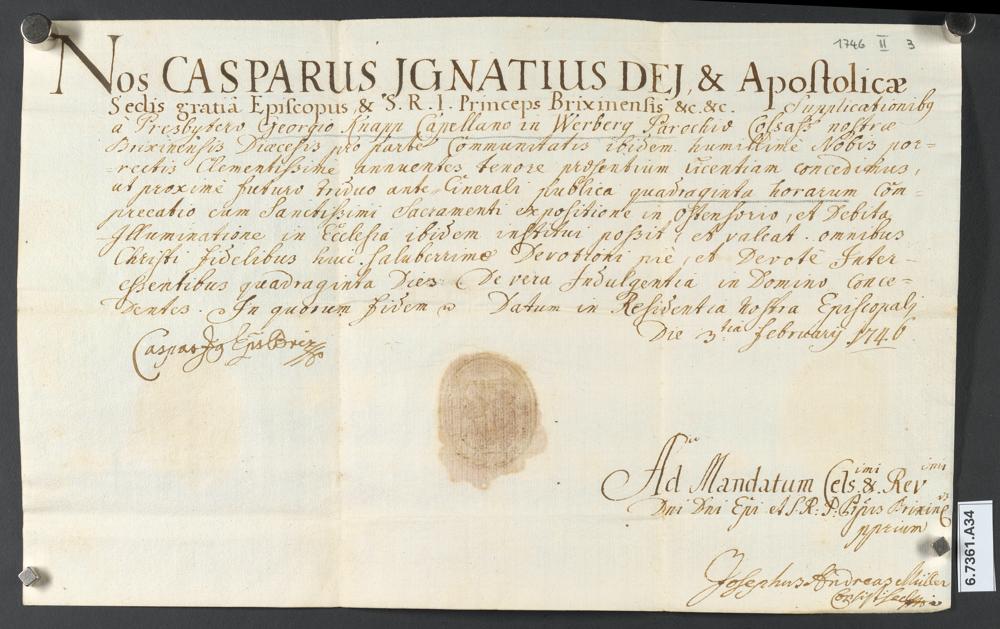 1746 II 3
Nos CASPARUS JGNATIUS DEJ, & Apostolicæ
Sedis gratiâ Episcopus, & S. R. I. Princeps Brixinensis &c. &c. Supplicationibq
à Presbytero Georgio Knapp Capellano in Werberg Parochiæ Colsass nostræ
Brixinensis Diæcesis pro parte Communitatis ibidem humillimè Nobis por=
=rectis Clementissimè annuentes tenore præsentium licentiam concedimus,
ut proximè futuro triduo ante Cinerali publica quadraginta horarum Com=
precatio cum Sanctissimi Sacramenti expositione in Ostensorio, et Debita
Illuminatione in Ecclesia ibidem institui possit, et valeat. omnibus
Christi fidelibus huic saluberrimæ Devotioni piè, et Devotè Inter=
essentibus quadraginta Dies De vera Indulgentia in Domino conce=
Dentes. In quorum fidem Datum in Residentia nostra Episcopali
Die 3.tia February 1746
Caspar Jg Eps Brix
Ad Mandatum Cels.imi & Rev.imi
Dni Dni Epi et S. R. I. Pſpis Brixinēs
pprium
Josephus Andreas Müller
6.7361.A34